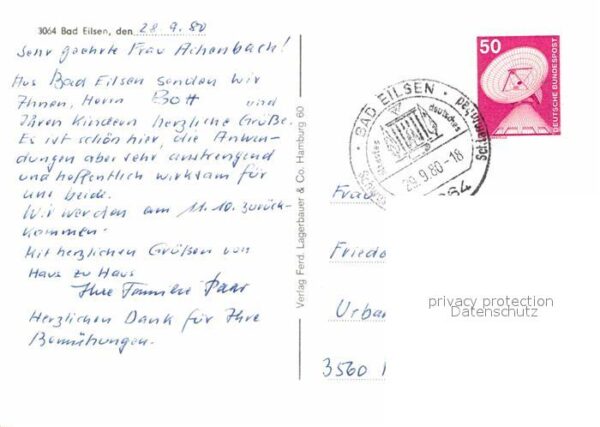 3064 Bad Eilsen, den 28.9.80
Sehr geehrte Frau Achenbach!
Aus Bad Eilsen senden wir
Ihnen, Herrn Bott und
Ihren Kindern herzliche Grüße.
Es ist schön hier, die Anwen-
dungen aber sehr anstrengend
und hoffentlich wirksam für
uns beide.
Wir werden am 11.10. zurück-
kommen.
Mit herzlichen Grüßen von
Haus zu Haus
Ihre Familie Paar
Herzlichen Dank für Ihre
Bemühungen.
Verlag Ferd. Lagerbauer & Co. Hamburg 60
BAD EILSEN
deutsches
29.9.80-18
50
DEUTSCHE BUNDESPOST
Frau
Friedo
Urban
3560
privacy protection
Datenschutz